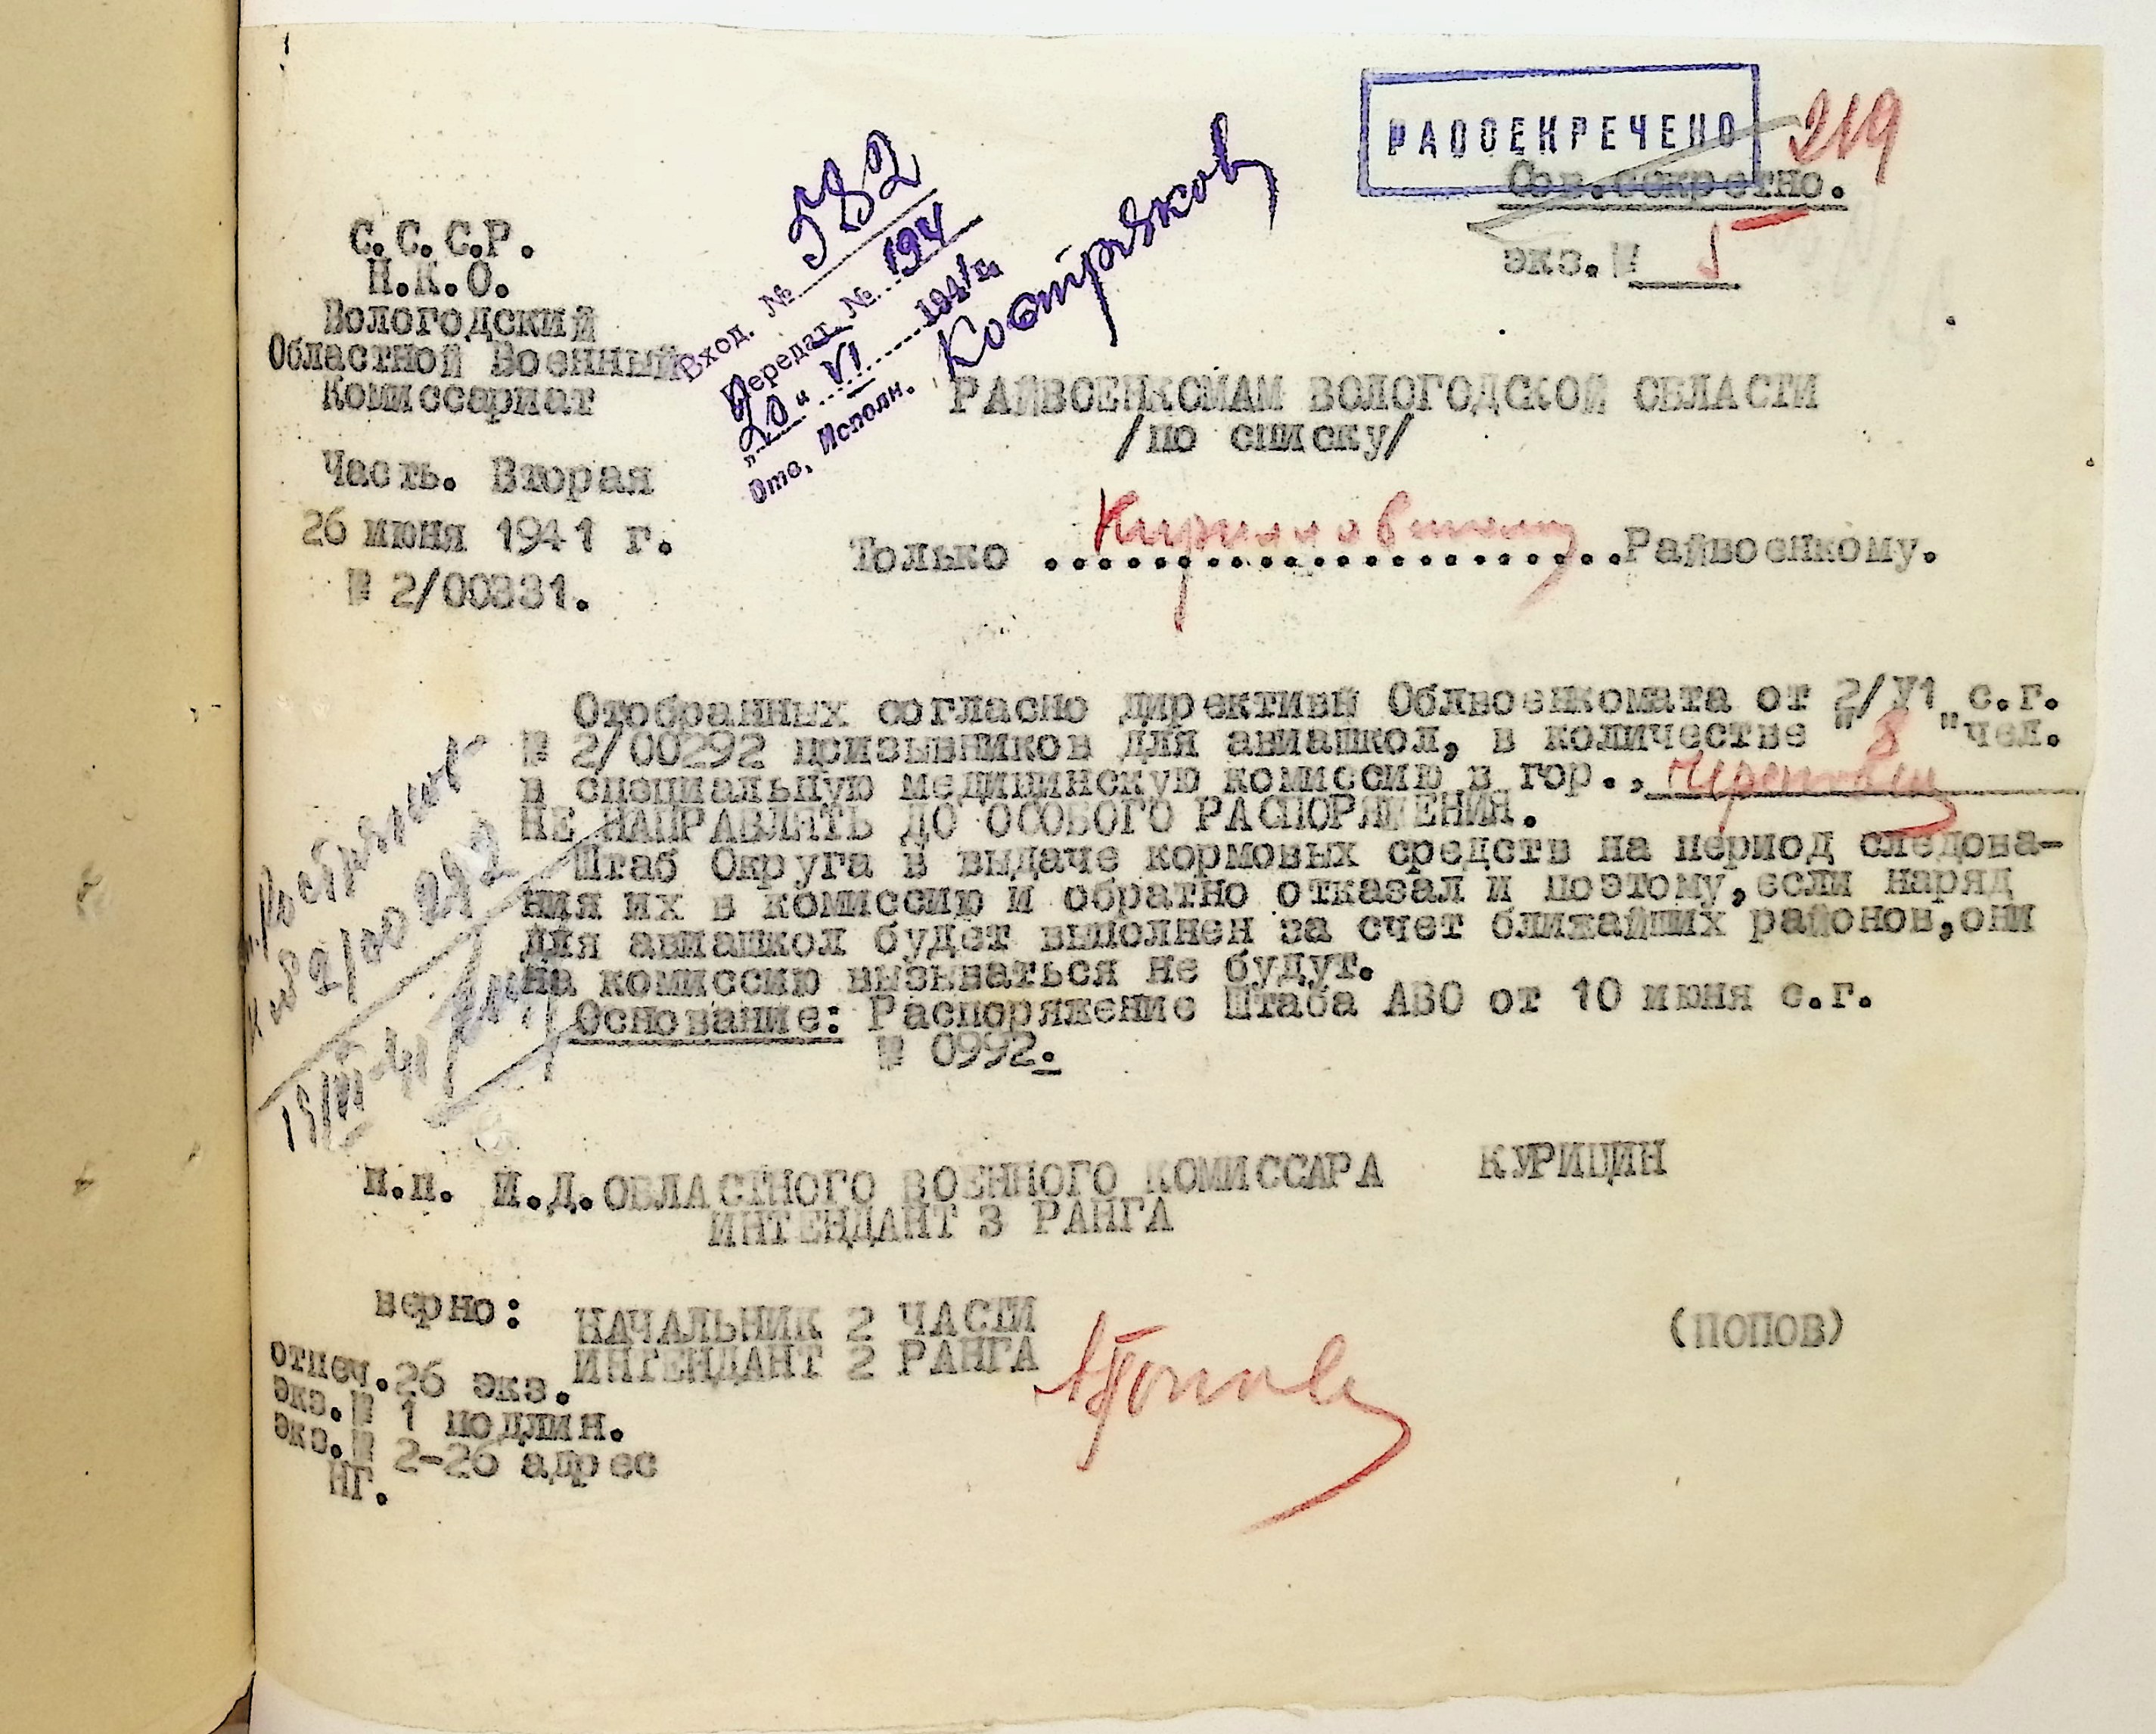 РАССЕКРЕЧЕНО
219
Сов.секретно.
экз.№ 5
С.С.С.Р.
Н.К.О.
Вологодский
Областной Военный
Комиссариат
Часть. Вторая
26 июня 1941 г.
№ 2/00331.
Вход. № 582
Передат. № 194
"20" VI 1941 г.
Отв. Исполн. Костряков
РАЙВОЕНКОМАМ ВОЛОГОДСКОЙ ОБЛАСТИ
/по списку/
Только Кирилловскому Райвоенкому.
Отобранных согласно директивы Облвоенкомата от 2/У1 с.г.
№ 2/00292 призывников для авиашкол, в количестве "8" чел.
в специальную медицинскую комиссию в гор., Череповец
НЕ НАПРАВЛЯТЬ ДО ОСОБОГО РАСПОРЯЖЕНИЯ.
Штаб Округа в выдаче кормовых средств на период следова-
ния их в комиссию и обратно отказал и поэтому,если наряд
для авиашкол будет выполнен за счет ближайших районов,они
на комиссию вызываться не будут.
Основание: Распоряжение Штаба АВО от 10 июня с.г.
№ 0992.
т. Костряков
к № 2/00292
19/VI-41
п.п. И.Д.ОБЛАСТНОГО ВОЕННОГО КОМИССАРА КУРИЦИН
ИНТЕНДАНТ 3 РАНГА
верно: НАЧАЛЬНИК 2 ЧАСТИ
ИНТЕНДАНТ 2 РАНГА Попов (ПОПОВ)
отпеч.26 экз.
экз.№ 1 подлин.
экз.№ 2-26 адрес
НГ.